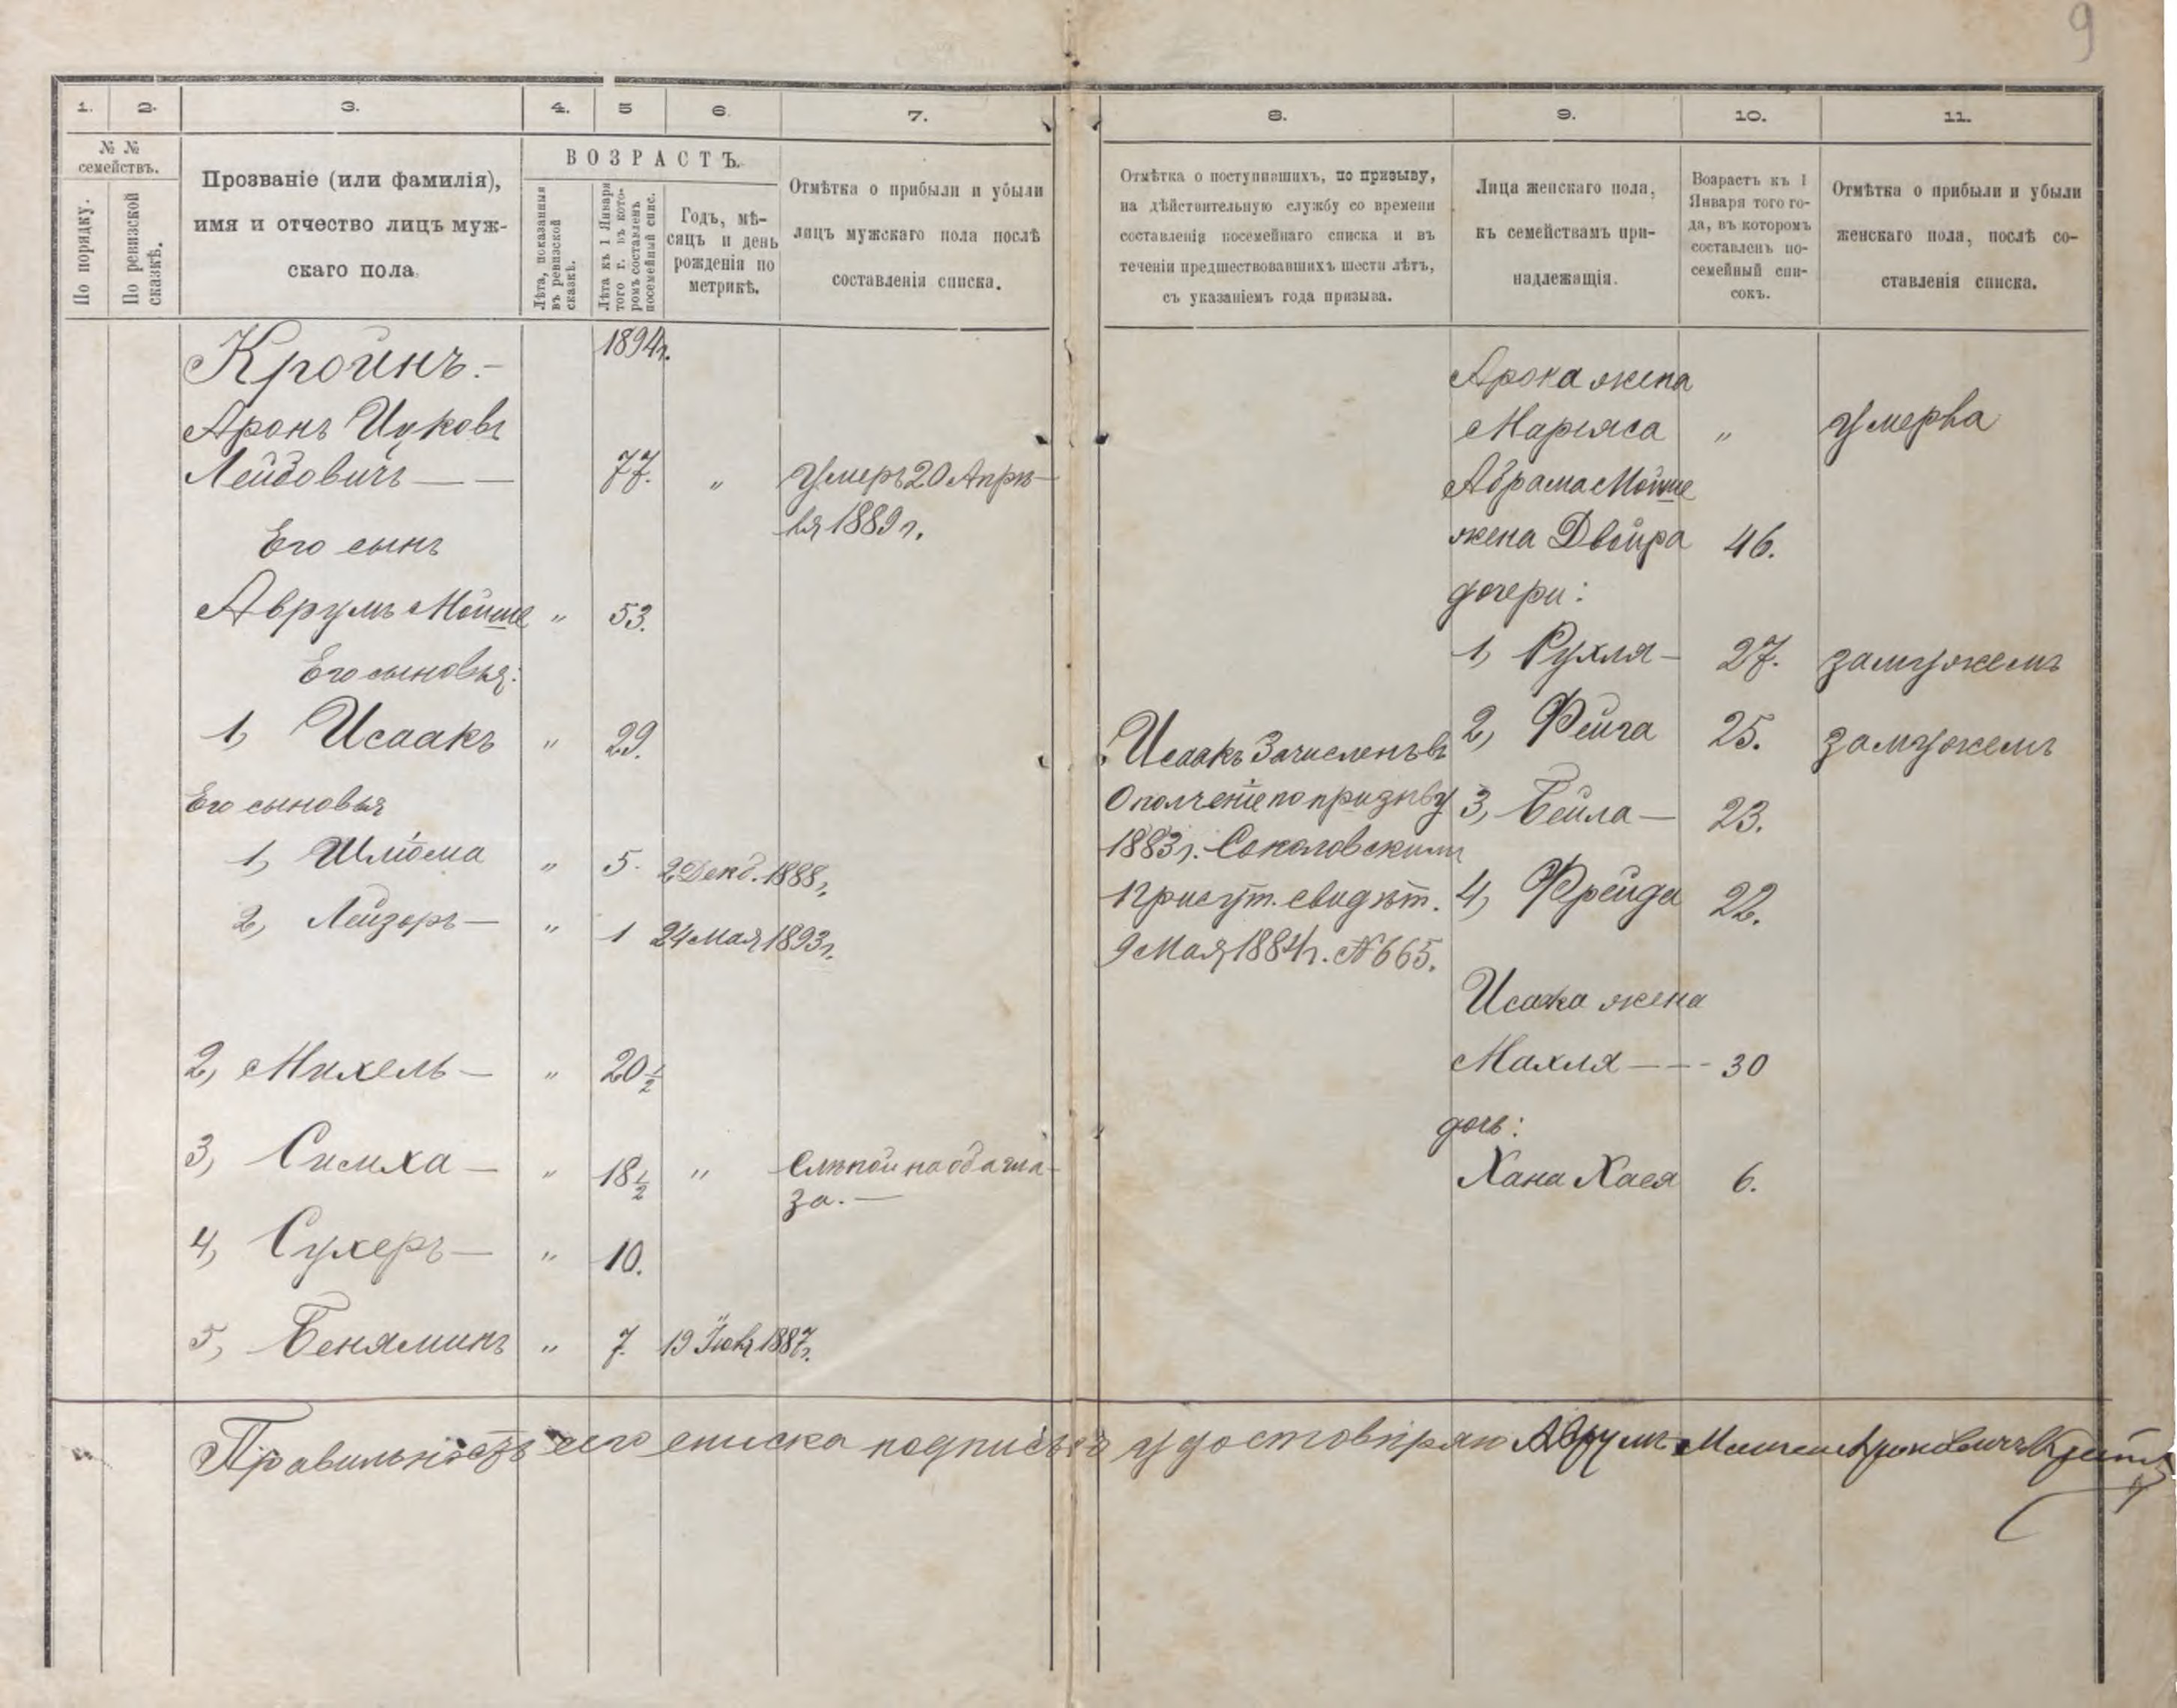 9
1. 2. 3. 4. 5 6. 7. 8. 9. 10. 11.
№ №
семействъ.
По порядку.
По ревизской
сказкѣ.
Прозваніе (или фамилія),
имя и отчество лицъ муж-
скаго пола.
ВОЗРАСТЪ.
Лѣта, показанныя
въ ревизской
сказкѣ.
Лѣта къ 1 Января
того г. въ кото-
ромъ составленъ
посемейный спис.
Годъ, мѣ-
сяцъ и день
рожденія по
метрикѣ.
Отмѣтка о прибыли и убыли
лицъ мужскаго пола послѣ
составленія списка.
Отмѣтка о поступившихъ, по призыву,
на дѣйствительную службу со времени
составленія посемейнаго списка и въ
теченіи предшествовавшихъ шести лѣтъ,
съ указаніемъ года призыва.
Лица женскаго пола,
къ семействамъ при-
надлежащія.
Возрастъ къ 1
Января того го-
да, въ которомъ
составленъ по-
семейный спи-
сокъ.
Отмѣтка о прибыли и убыли
женскаго пола, послѣ со-
ставленія списка.
Кройнъ.- 1894г.
Аронъ Ицковъ
Лейбовичъ — — 77. " Умеръ 20 Апрѣ-
ля 1889 г.
Его сынъ
Аврумъ Мойше " 53.
Его сыновья:
1, Исаакъ " 29.
Его сыновья
1, Шліома " 5. 2 Декб. 1888 г.
2, Лейзеръ — " 1 24 Мая 1893 г.
2, Михель — " 20 1/2
3, Симха — " 18 1/2 " Слѣпой на оба гла-
за. —
4, Сухеръ — " 10.
5, Беняминъ " 7. 19 Іюля 1887 г.
Исаакъ Зачисленъ въ
Ополченіе по призыву
1883 г. Соколовскимъ
присут. свидѣт.
9 Мая 1884 г. № 665.
Арона жена
Марьяса " Умерла
Абрама Мойше
жена Двойра 46.
дочери:
1, Рухля — 27. замужемъ
2, Фейга 25. замужемъ
3, Бейла — 23.
4, Фрейда 22.
Исаака жена
Махля — - - 30
дочь:
Хана Хася 6.
Правильность сего списка подписью удостовѣряю Аврумъ Мошко Ароновичъ